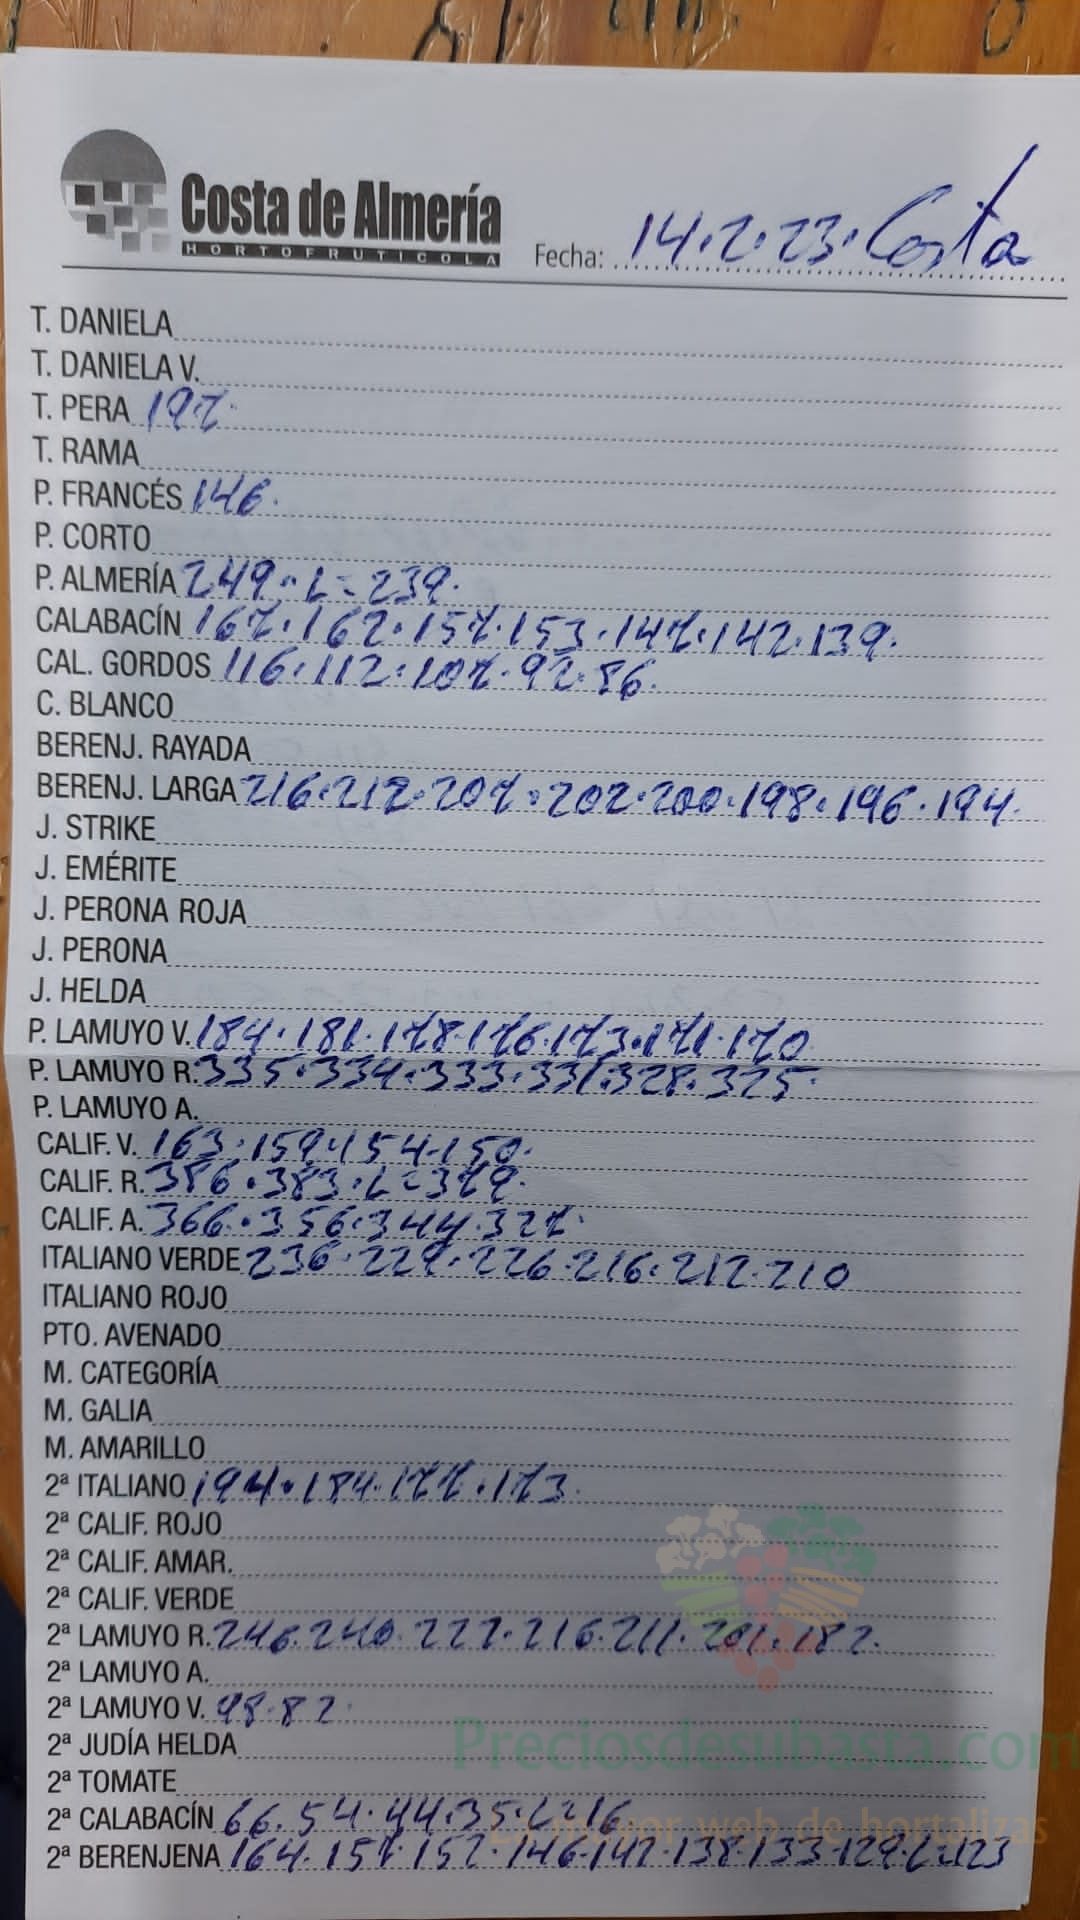 Costa de Almería
HORTOFRUTICOLA
Fecha: 14.2.23. Costa
T. DANIELA
T. DANIELA V.
T. PERA 197.
T. RAMA
P. FRANCÉS 146.
P. CORTO
P. ALMERÍA 249. L= 239.
CALABACÍN 167. 162. 157. 153. 147. 142. 139.
CAL. GORDOS 116. 112. 107. 92. 86.
C. BLANCO
BERENJ. RAYADA
BERENJ. LARGA 216. 212. 207. 202. 200. 198. 196. 194.
J. STRIKE
J. EMÉRITE
J. PERONA ROJA
J. PERONA
J. HELDA
P. LAMUYO V. 184. 181. 178. 176. 173. 171. 170
P. LAMUYO R. 335. 334. 333. 331. 328. 325.
P. LAMUYO A.
CALIF. V. 163. 159. 154. 150.
CALIF. R. 386. 383. L= 379.
CALIF. A. 366. 356. 344. 327.
ITALIANO VERDE 236. 229. 226. 216. 212. 210
ITALIANO ROJO
PTO. AVENADO
M. CATEGORÍA
M. GALIA
M. AMARILLO
2ª ITALIANO 194. 184. 177. 173.
2ª CALIF. ROJO
2ª CALIF. AMAR.
2ª CALIF. VERDE
2ª LAMUYO R. 246. 240. 222. 216. 211. 201. 182.
2ª LAMUYO A.
2ª LAMUYO V. 98. 82.
Preciosdesubasta.com
2ª JUDÍA HELDA
2ª TOMATE
2ª CALABACÍN 66. 54. 44. 35. L=16
La mayor web de hortalizas
2ª BERENJENA 164. 157. 152. 146. 142. 138. 133. 129. L=123